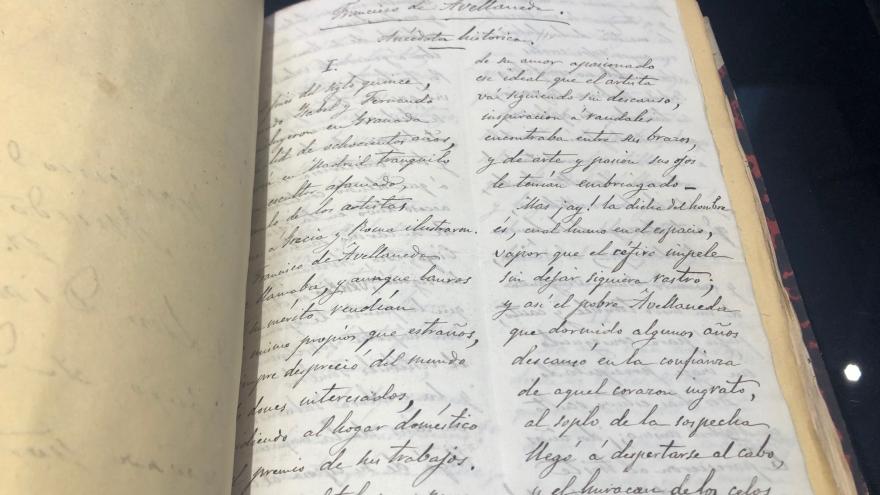 Francisco de Avellaneda.
Anécdota histórica.
I.
del siglo quince,
Isabel y Fernando
en Granada
de ochocientos años,
en Madrid tranquilo
escultor afamado,
de los artistas
a Grecia y Roma ilustraron.
Francisco de Avellaneda
llamaba, y aunque lauros
mérito, rendian
mismo propios que estraños,
despreció del mundo
dones interesados,
al hogar doméstico
premio de sus trabajos.
de su amor apasionado
ese ideal que el artista
vá siguiendo sin descanso,
inspiracion á raudales
encontraba entre sus brazos,
y de arte y pasion sus ojos
le tenian embriagado—
Mas ¡ay! la dicha del hombre
és, cual humo en el espacio,
vapor que el céfiro impele
sin dejar siquiera rastro;
y así el pobre Avellaneda
que dormido algunos años
descansó en la confianza
de aquel corazon ingrato,
al soplo de la sospecha
llegó á despertarse al cabo,
y el huracan de los celos